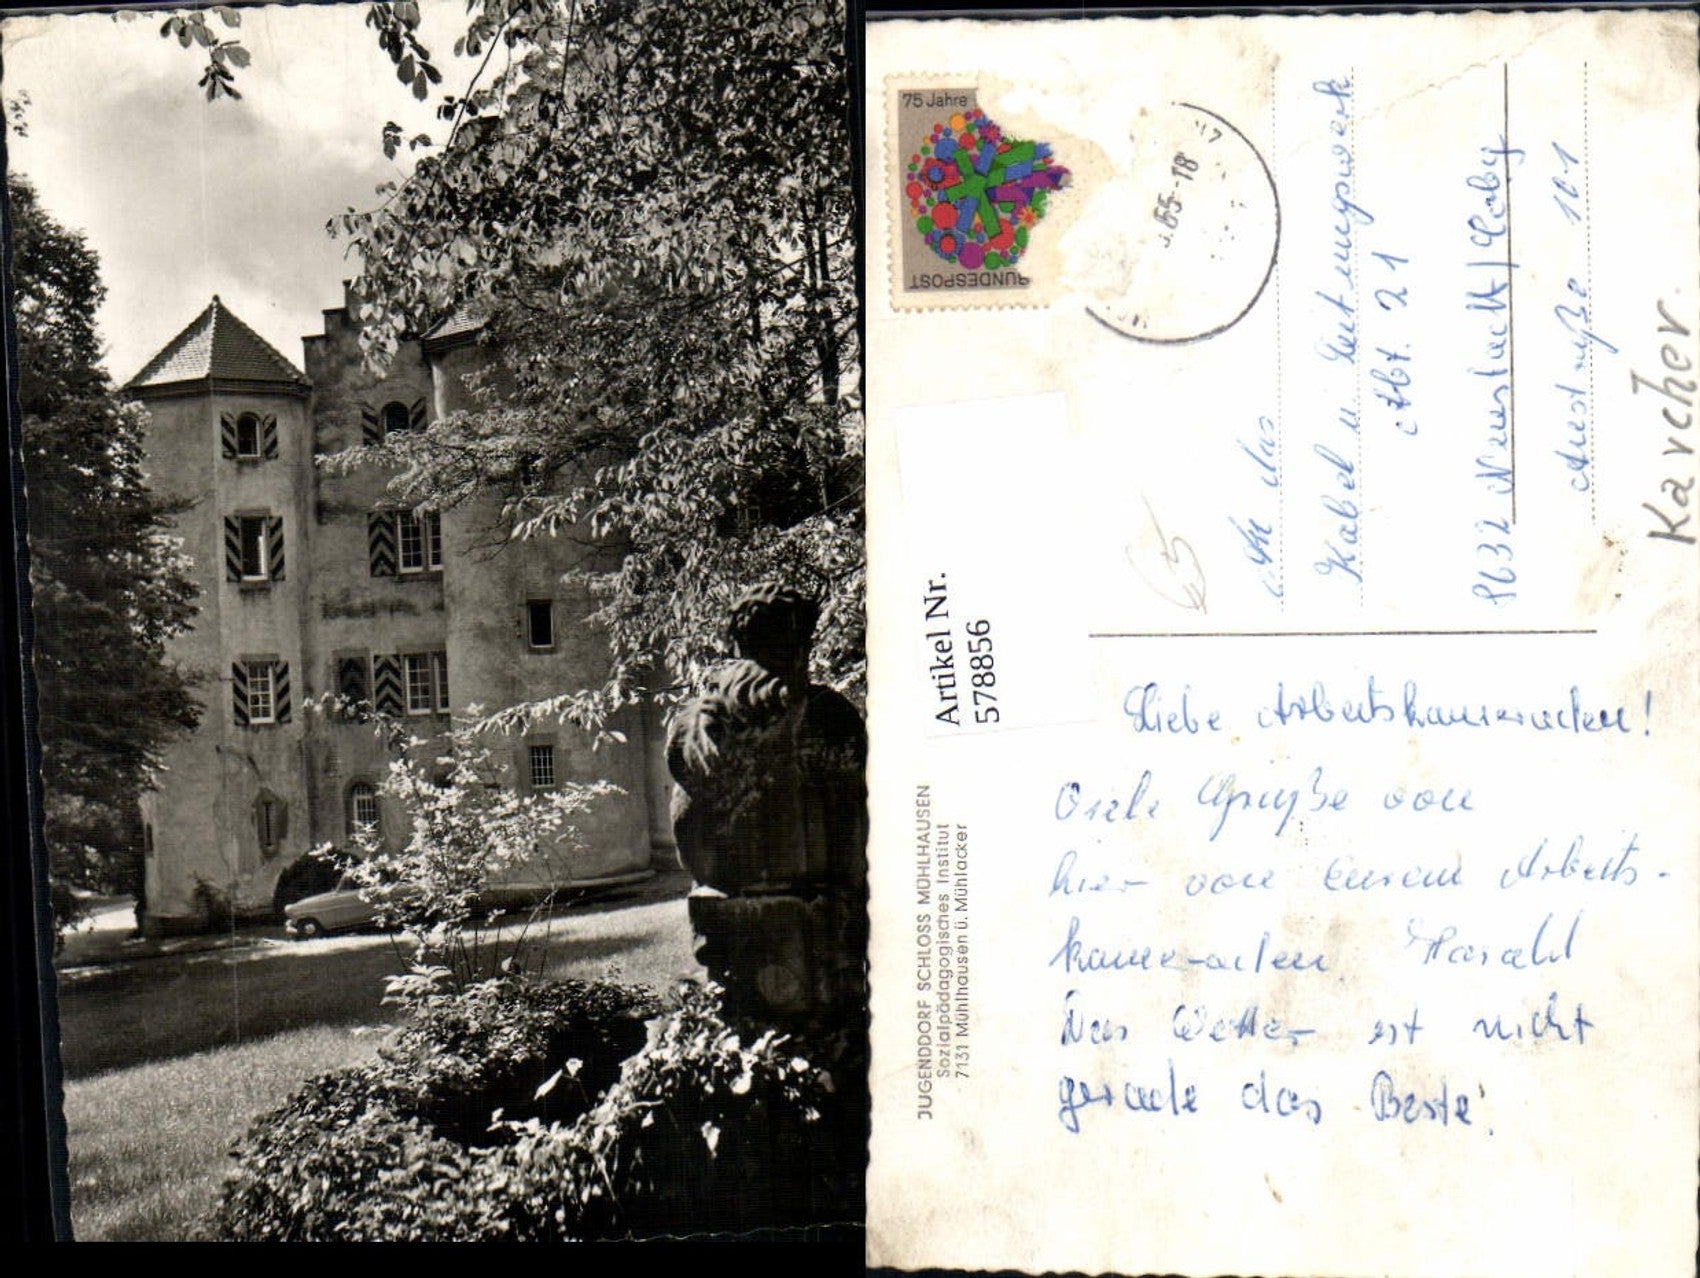 75 Jahre
BUNDESPOST
.65-18
An das
Kabel u. Leitungswerk
Abt. 21
8632 Neustadt/Cobg
Austraße 101
Karcher
65
Artikel Nr.
578856
JUGENDDORF SCHLOSS MÜHLHAUSEN
Sozialpädagogisches Institut
7131 Mühlhausen ü. Mühlacker
Liebe Arbeitskameraden!
Viele Grüße von
hier von eurem Arbeits-
kameraden Harald
Das Wetter ist nicht
gerade das Beste!